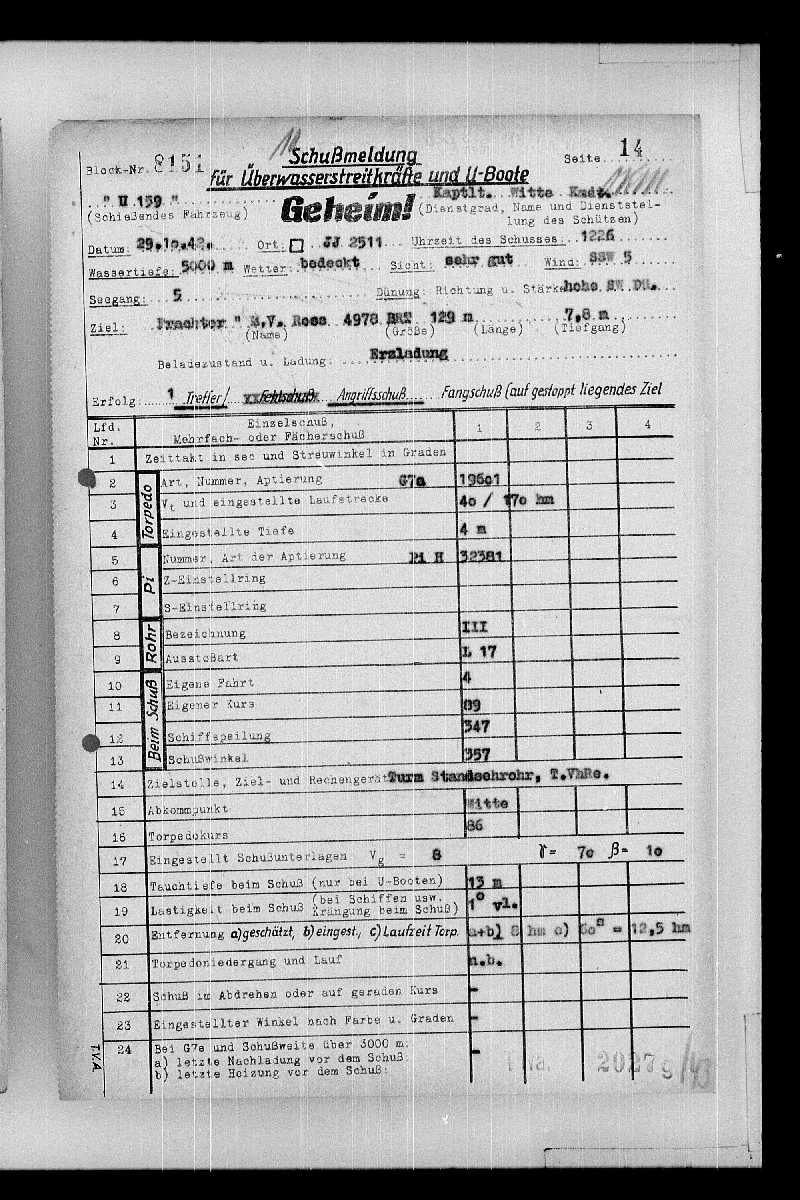 Block-Nr. 8151 Schußmeldung Seite 14
für Überwasserstreitkräfte und U-Boote
" U 159 " Kaptlt. Witte Kmdt.
(Schießendes Fahrzeug) Geheim! (Dienstgrad, Name und Dienststel-
lung des Schützen)
Datum: 29.1o.42. Ort: JJ 2511 Uhrzeit des Schusses: 1226
Wassertiefe: 5000 m Wetter: bedeckt Sicht: sehr gut Wind: SSW 5
Seegang: 5 Dünung: Richtung u. Stärke hohe SW Dü.
Ziel: Frachter " M.V. Ross 4978 BRT 129 m 7,8 m
(Name) (Größe) (Länge) (Tiefgang)
Beladezustand u. Ladung: Erzladung
Erfolg: 1 Treffer/ Fehlschuß Angriffsschuß Fangschuß (auf gestoppt liegendes Ziel
Lfd. Nr. Einzelschuß, Mehrfach- oder Fächerschuß 1 2 3 4
1 Zeittakt in sec und Streuwinkel in Graden
Torpedo
2 Art, Nummer, Aptierung G7a 196o1
3 Vt und eingestellte Laufstrecke 4o / 17o hm
4 Eingestellte Tiefe 4 m
Pi
5 Nummer, Art der Aptierung Pi H 32381
6 Z-Einstellring
7 S-Einstellring
Rohr
8 Bezeichnung III
9 Ausstoßart L 17
Beim Schuß
10 Eigene Fahrt 4
11 Eigener Kurs 89
12 Schiffspeilung 347
13 Schußwinkel 357
14 Zielstelle, Ziel- und Rechengerät Turm Standsehrohr, T.VhRe.
15 Abkommpunkt Mitte
16 Torpedokurs 86
17 Eingestellt Schußunterlagen Vg = 8 γ= 7o β= 1o
18 Tauchtiefe beim Schuß (nur bei U-Booten) 13 m
19 Lastigkeit beim Schuß (bei Schiffen usw. Krängung beim Schuß) 1° vl.
20 Entfernung a) geschätzt, b) eingest., c) Laufzeit Torp. a+b) 8 hm c) 6o" = 12,5 hm
21 Torpedoniedergang und Lauf n.b.
22 Schuß im Abdrehen oder auf geraden Kurs -
23 Eingestellter Winkel nach Farbe u. Graden -
24 Bei G7e und Schußweite über 3000 m:
a) letzte Nachladung vor dem Schuß: -
b) letzte Heizung vor dem Schuß:
T.V.A
2027 g/43